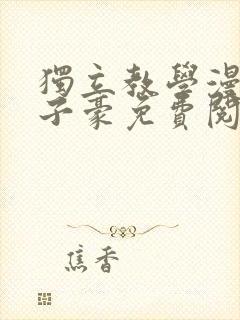 獨立教學漫
子豪免費閱
焦香